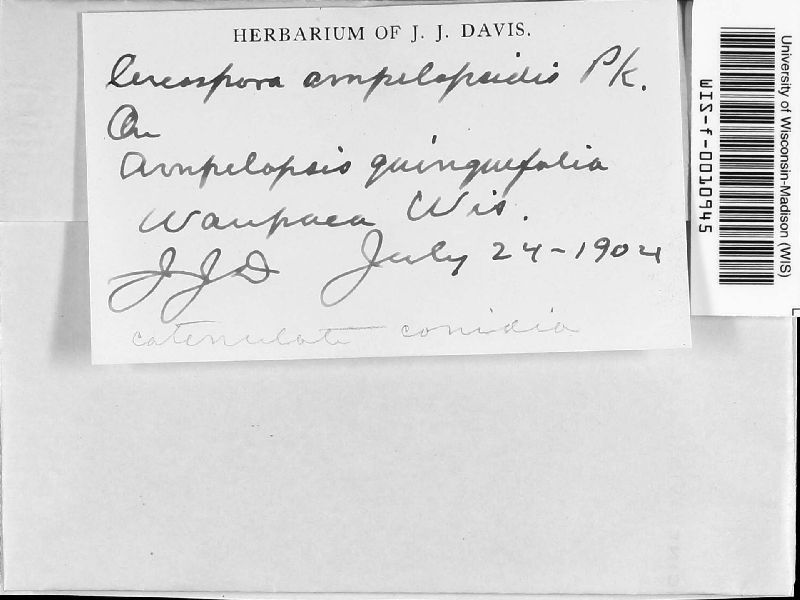 HERBARIUM OF J. J. DAVIS.
Cercospora ampelopsidis Pk.
On
Ampelopsis quinquefolia
Waupaca Wis.
JJD July 24-1904
catenulate conidia
University of Wisconsin-Madison (WIS)
WIS-f-0010945